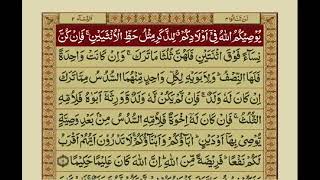 يُوْصِيْكُمُ اللّٰهُ فِيْٓ اَوْلَادِكُمْ ۗ لِلذَّكَرِ مِثْلُ حَظِّ الْاُنْثَيَيْنِ ۚ فَاِنْ كُنَّ
نِسَآءً فَوْقَ اثْنَتَيْنِ فَلَهُنَّ ثُلُثَا مَا تَرَكَ ۚ وَاِنْ كَانَتْ وَاحِدَةً
فَلَهَا النِّصْفُ ؕ وَلِاَبَوَيْهِ لِكُلِّ وَاحِدٍ مِّنْهُمَا السُّدُسُ مِمَّا تَرَكَ
اِنْ كَانَ لَهٗ وَلَدٌ ۚ فَاِنْ لَّمْ يَكُنْ لَّهٗ وَلَدٌ وَّوَرِثَهٗٓ اَبَوٰهُ فَلِاُمِّهِ
الثُّلُثُ ۚ فَاِنْ كَانَ لَهٗٓ اِخْوَةٌ فَلِاُمِّهِ السُّدُسُ مِنْۢ بَعْدِ وَصِيَّةٍ
يُّوْصِيْ بِهَآ اَوْ دَيْنٍ ؕ اٰبَآؤُكُمْ وَاَبْنَآؤُكُمْ لَا تَدْرُوْنَ اَيُّهُمْ اَقْرَبُ
لَكُمْ نَفْعًا ؕ فَرِيْضَةً مِّنَ اللّٰهِ ؕ اِنَّ اللّٰهَ كَانَ عَلِيْمًا حَكِيْمًا